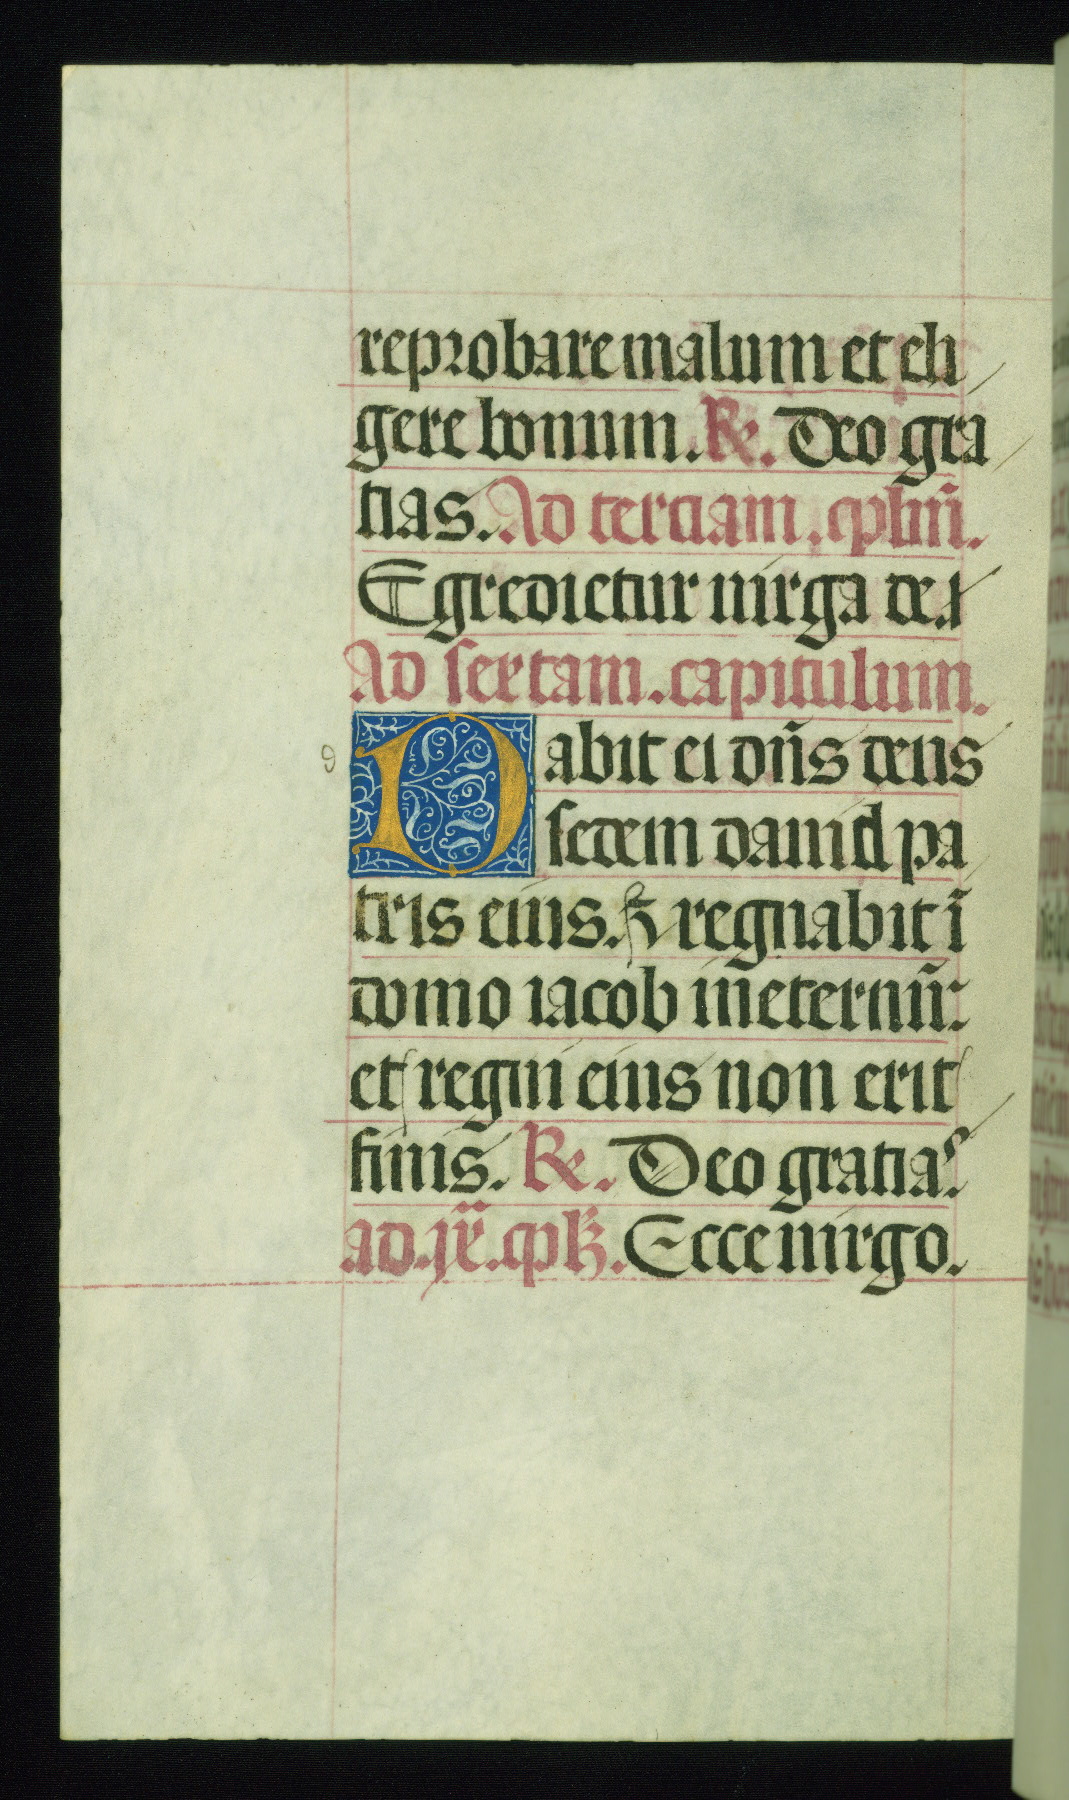 reprobare malum et eli
gere bonum. ℟. Deo gra
tias. Ad terciam. cplm̄.
Egredietur uirga de.r̄
Ad sextam. capitulum.
Dabit ei dn̄s deus
sedem dauid pa
tris eius. ⁊ regnabit ī
domo iacob in eternū:
et regni eius non erit
finis. ℟. Deo gratias.
ad .ix̄. cpl̄. Ecce uirgo.